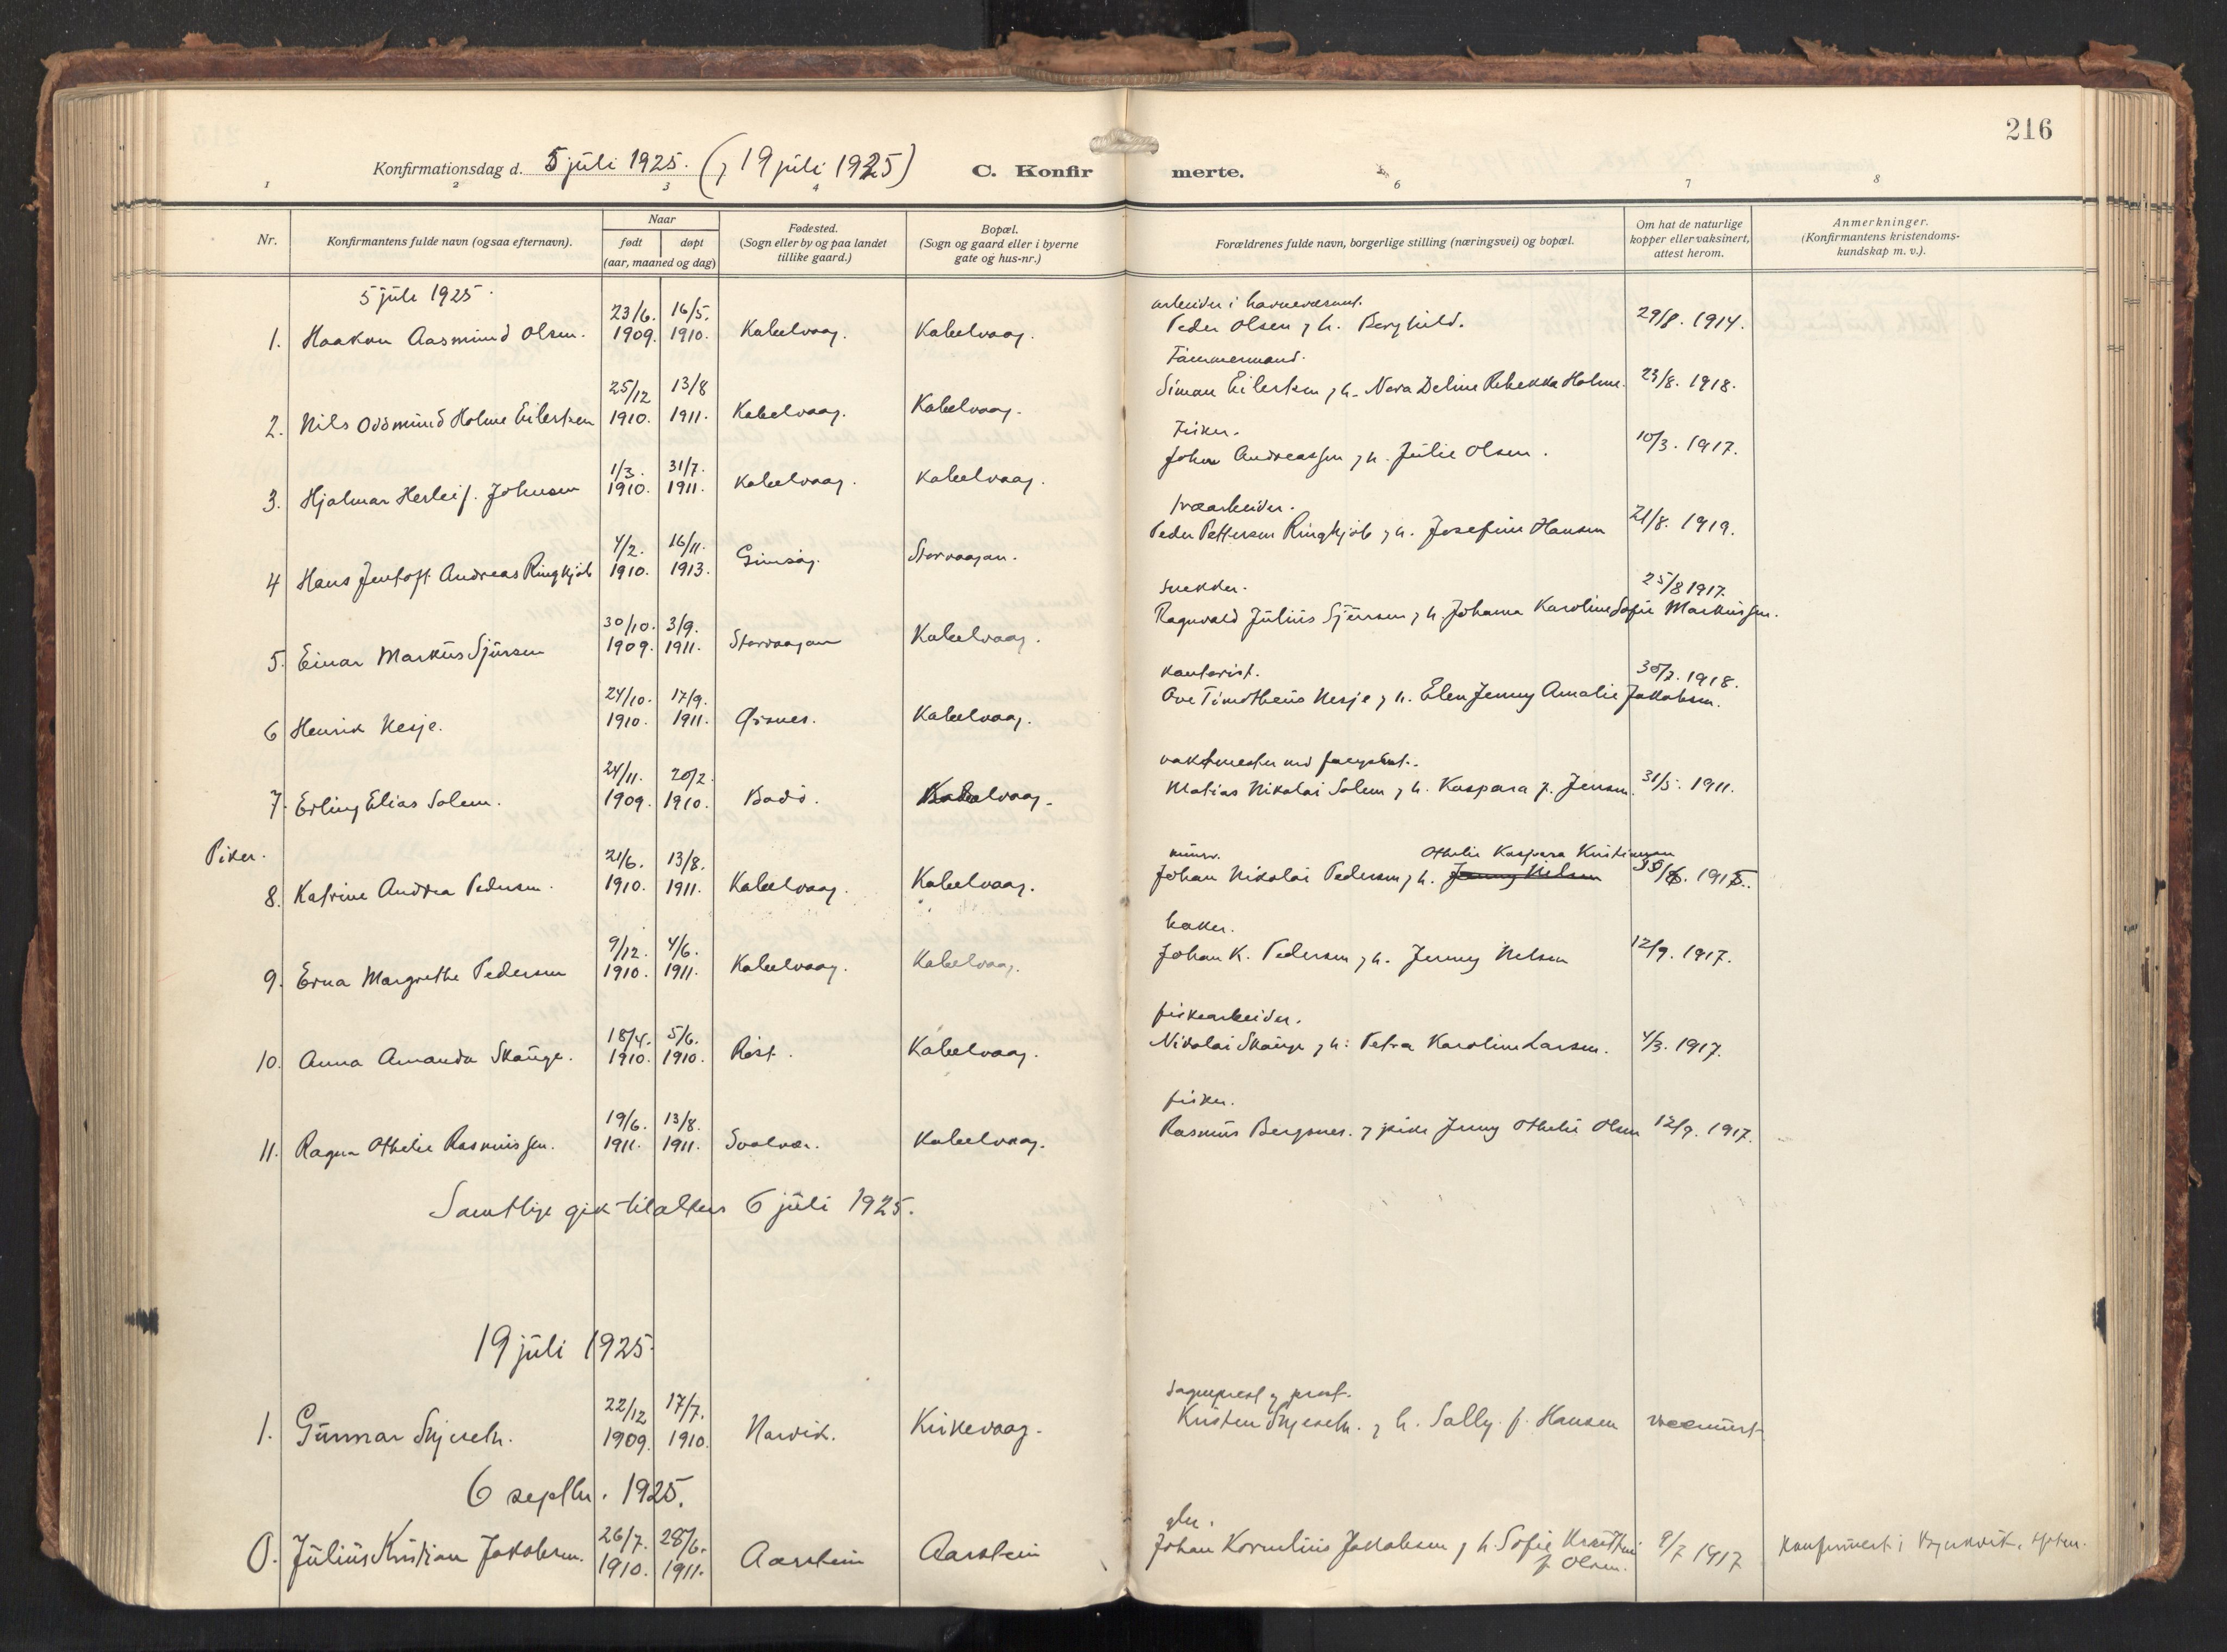 216
Konfirmationsdag d. 5 juli 1925. (, 19 juli 1925)
C. Konfirmerte.
1 2 3 4 6 7 8
Nr.
Konfirmantens fulde navn (ogsaa efternavn).
Naar
født døpt
(aar, maaned og dag)
Fødested.
(Sogn eller by og paa landet
tillike gaard.)
Bopæl.
(Sogn og gaard eller i byerne
gate og hus-nr.)
Forældrenes fulde navn, borgerlige stilling (næringsvei) og bopæl.
Om hat de naturlige
kopper eller vaksinert,
attest herom.
Anmerkninger.
(Konfirmantens kristendoms-
kundskap m. v.).
5 juli 1925.
23/6. 16/5. arbeider i havnevæsent.
1. Haakon Aasmund Olsen. 1909. 1910. Kabelvaag. Kabelvaag. Peder Olsen, h. Berghild. 29/8. 1914.
25/12 13/8 Tømmermand.
2. Nils Oddmund Holme Eilertsen 1910. 1911. Kabelvaag. Kabelvaag. Simon Eilertsen, h. Nora Deline Rebekka Holme. 23/8. 1918.
1/3. 31/7. Fisker.
3. Hjalmar Herleif Johnsen 1910. 1911. Kabelvaag. Kabelvaag. Johan Andreassen, h. Julie Olsen. 10/3. 1917.
4/2. 16/11.
4 Hans Jentoft Andreas Ringkjøb 1910. 1913. Gimsøy. Storvaagan. Peder Pettersen Ringkjøb, h. Josefine Hansen 21/8. 1919.
30/10. 3/9. snekker. 25/8 1917.
5. Einar Markus Sjursen 1909. 1911. Storvaagan Kabelvaag. Ragnvald Julius Sjursen, h. Johanna Karoline Sofie Markussen.
24/10. 17/9. kontorist. 30/7. 1918.
6 Henrik Nesje. 1910. 1911. Kabelvaag. Ove Timotheus Nesje, h. Elen Jenny Amalie Jakobsen.
24/11. 20/2. vaktmester ved
7. Erling Elias Solem. 1909. 1910. Bodø. Kabelvaag. Matias Nikolai Solem, h. Kaspara f. Jensen. 31/5. 1911.
Piker.
21/6. 13/8. murer. Othelie Kaspara Kristiansen
8. Katrine Andrea Pedersen. 1910. 1911. Kabelvaag. Kabelvaag. Johan Nikolai Pedersen, h. Jenny Nilsen
9/12. 4/6. baker.
9. Erna Margrethe Pedersen 1910. 1911. Kabelvaag. Kabelvaag. Johan K. Pedersen, h. Jenny Nilsen 12/9. 1917.
18/4. 5/6. fiskearbeider.
10. Anna Amanda Skauge. 1910. 1910. Røst. Kabelvaag. Nikolai Skauge, h: Petra Karoline Larsen. 4/3. 1917.
19/6. 13/8. fisker.
11. Ragna Othelie Rasmussen. 1911. 1911. Svolvær. Kabelvaag. Rasmus Bergsnes. , pike Jenny Othelie Olsen 12/9. 1917.
Samtlige gik til alters 6 juli 1925.
19 juli 1925.
22/12 17/7. sogneprest og prost.
1. Gunnar Skjeseth. 1909. 1910. Narvik. Kirkevaag. Kristen Skjeseth. , h. Sally f. Hansen
6 septbr. 1925.
26/7. 28/6. gbr.
0. Julius Kristian Jakobsen. 1910. 1911. Aarstein Aarstein Johan Kornelius Jakobsen, h. Sofie f. Olsen. 9/7 1917 Konfirmert i